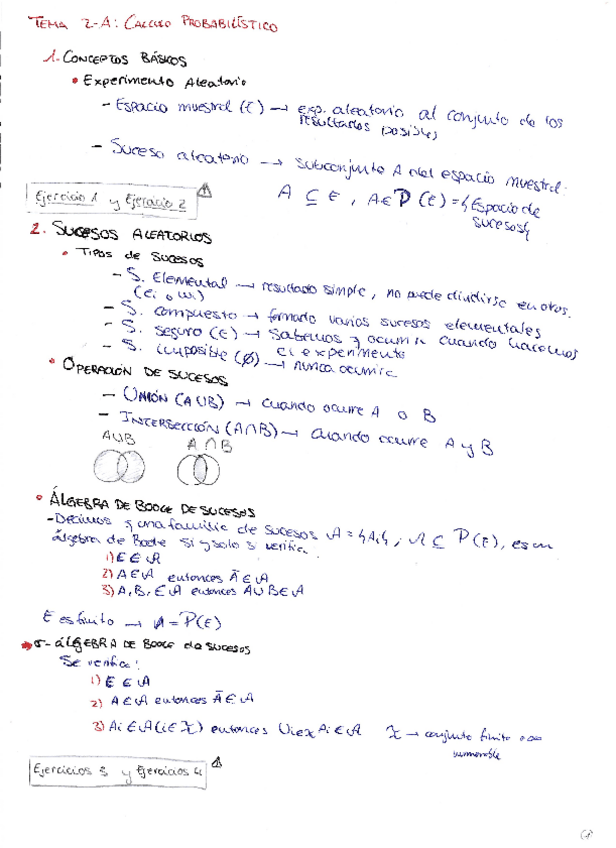 TEMA 2-A: CALCULO PROBABILÍSTICO
1. CONCEPTOS BÁSICOS
• Experimento Aleatorio
- Espacio muestral (E) → exp. aleatorio al conjunto de los
resultados posibles
- Suceso aleatorio → subconjunto A del espacio muestral.
A ⊆ E, A ∈ P(E) = {Espacio de
sucesos}
Ejercicio 1 y Ejercicio 2
2. SUCESOS ALEATORIOS
• TIPOS de SUCESOS
- S. Elemental → resultado simple, no puede dividirse en otros.
(ei o wi)
- S. compuesto → formado varios sucesos elementales
- S. seguro (E) → Sabemos q ocurrir cuando hacemos
el experimento
- S. imposible (∅) → nunca ocurrir
• OPERACIÓN DE SUCESOS
- UNIÓN (A∪B) → cuando ocurre A o B
- INTERSECCIÓN (A∩B) → cuando ocurre A y B
A∪B A∩B
• ÁLGEBRA DE BOOLE DE SUCESOS
- Decimos q una familia de sucesos A = {Ai}; A ⊆ P(E), es un
álgebra de Boole si y solo si verifica:
1) E ∈ A
2) A ∈ A entonces Ā ∈ A
3) A, B, ∈ A entonces A∪B ∈ A
E es finito → A = P(E)
→ σ-álGEBRA DE BOOLE de sucesos
Se verifica:
1) E ∈ A
2) A ∈ A entonces Ā ∈ A
3) Ai ∈ A (i ∈ X) entonces ∪i∈X Ai ∈ A X → conjunto finito o ∞
numerable
Ejercicios 3 y Ejercicios 4